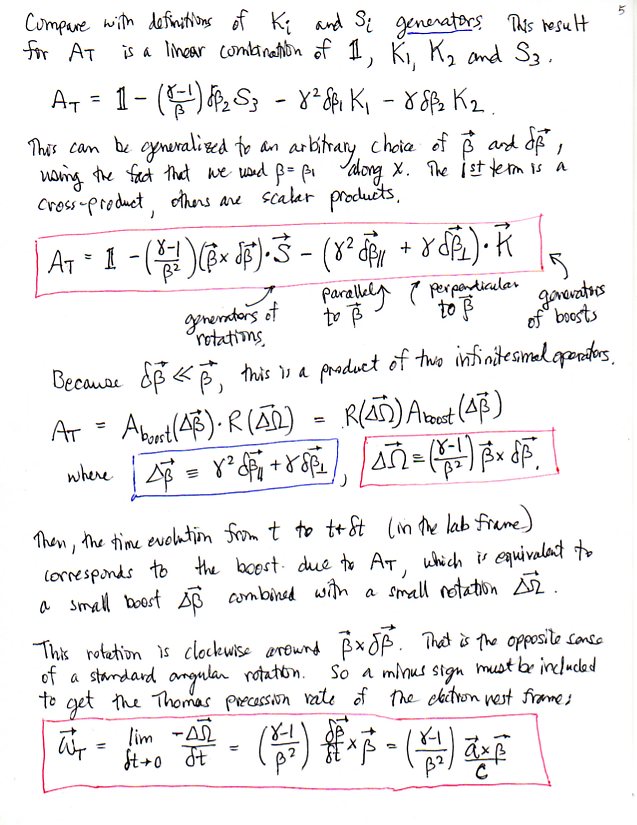 5
Compare with definitions of Ki and Si generators. This result
for A_T is a linear combination of 𝟙, K₁, K₂ and S₃.
A_T = 𝟙 - ((γ-1)/β) δβ₂ S₃ - γ² δβ₁ K₁ - γ δβ₂ K₂.
This can be generalized to an arbitrary choice of β⃗ and δβ⃗,
using the fact that we used β = β₁ along x. The 1st term is a
cross-product, others are scalar products.
A_T = 𝟙 - ((γ-1)/β²)(β⃗ × δβ⃗)·S⃗ - (γ² δβ⃗∥ + γ δβ⃗⊥)·K⃗
generators of rotations.
parallel to β⃗
perpendicular to β⃗
generators of boosts
Because δβ⃗ ≪ β⃗, this is a product of two infinitesmal operators.
A_T = A_boost(Δβ⃗)·R(ΔΩ⃗) = R(ΔΩ⃗) A_boost(Δβ⃗)
where Δβ⃗ ≡ γ² δβ⃗∥ + γ δβ⃗⊥, ΔΩ⃗ ≡ ((γ-1)/β²) β⃗ × δβ⃗.
Then, the time evolution from t to t+δt (in the lab frame)
corresponds to the boost due to A_T, which is equivalent to
a small boost Δβ⃗ combined with a small rotation ΔΩ⃗.
This rotation is clockwise around β⃗ × δβ⃗. That is the opposite sense
of a standard angular rotation. So a minus sign must be included
to get the Thomas precession rate of the electron rest frame:
ω⃗_T = lim δt→0 -ΔΩ⃗/δt = ((γ-1)/β²) δβ⃗/δt × β⃗ = ((γ-1)/β²) (a⃗ × β⃗)/c